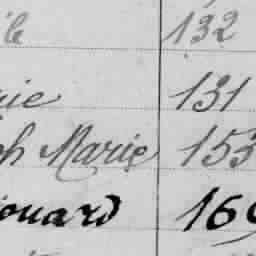 le 132
rie 131
ph Marie 153
ouard 169